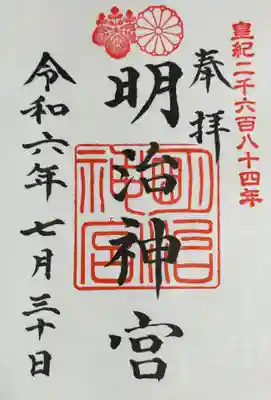 皇紀二千六百八十四年
奉拝
明治神宮
明治神宮
令和六年 七月 三十日